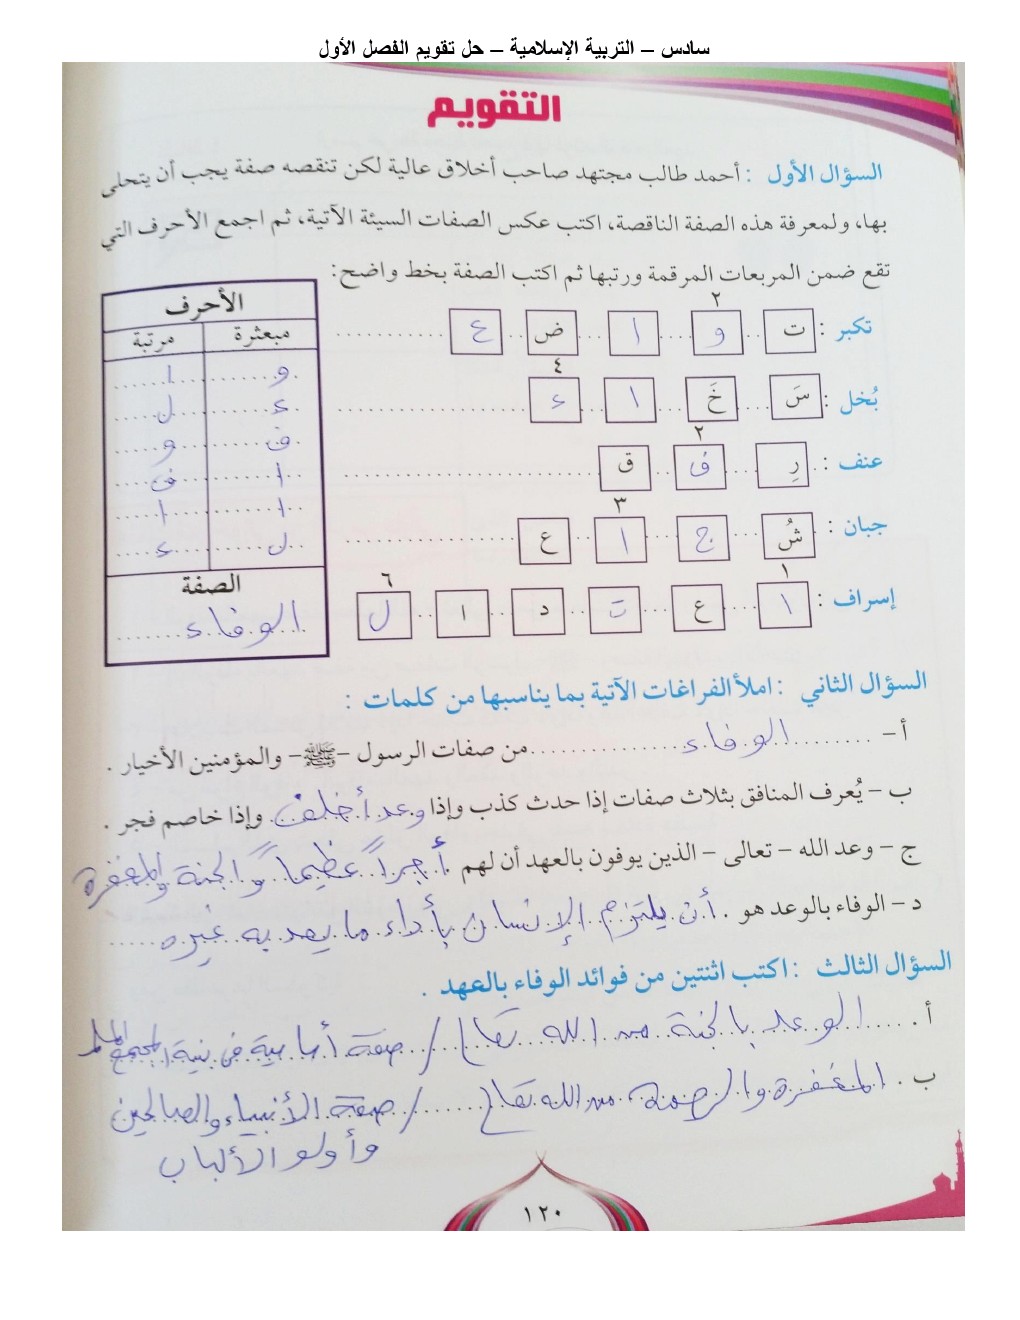 سادس – التربية الإسلامية – حل تقويم الفصل الأول
التقويم
السؤال الأول : أحمد طالب مجتهد صاحب أخلاق عالية لكن تنقصه صفة يجب أن يتحلى
بها، ولمعرفة هذه الصفة الناقصة، اكتب عكس الصفات السيئة الآتية، ثم اجمع الأحرف التي
تقع ضمن المربعات المرقمة ورتبها ثم اكتب الصفة بخط واضح:
٢
تكبر : ت و ا ض ع
٤
بُخل : سَ خَ ا ء
٢
عنف : رِ ف ق
٣
جبان : شُ ج ا ع
١ ٦
إسراف : ا ع ت د ا ل
الأحرف
مبعثرة مرتبة
و ا
ء ل
ف و
ا ف
ا ا
ل ء
الصفة
الوفاء
السؤال الثاني : املأ الفراغات الآتية بما يناسبها من كلمات :
أ- الوفاء من صفات الرسول -ﷺ- والمؤمنين الأخيار .
ب – يُعرف المنافق بثلاث صفات إذا حدث كذب وإذا وعد أخلف وإذا خاصم فجر .
ج – وعد الله – تعالى – الذين يوفون بالعهد أن لهم أجراً عظيماً والجنة والمغفرة
د – الوفاء بالوعد هو . أن يلتزم الإنسان بأداء ما يعد به غيره
السؤال الثالث : اكتب اثنتين من فوائد الوفاء بالعهد .
أ . الوعد بالجنة من الله تعالى / صفة أساسية في بنية المجتمع
ب . المغفرة والرحمة من الله تعالى / صفة الأنبياء والصالحين
وأولو الألباب
١٢٠